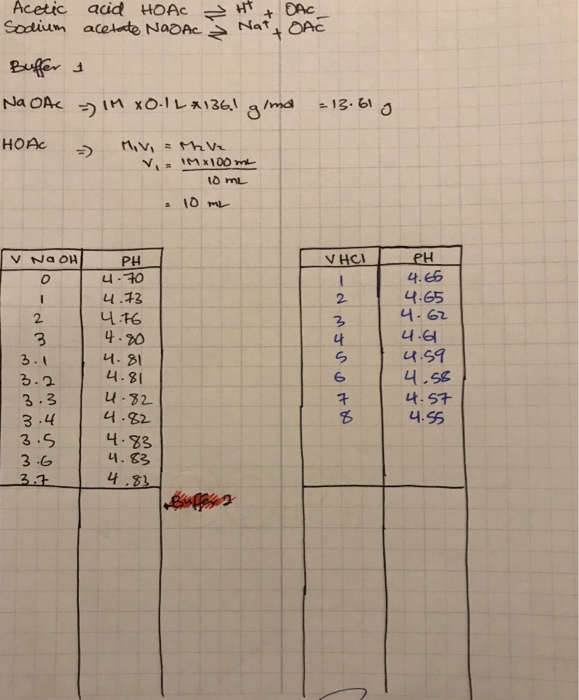 Acetic acid HOAc ⇌ H⁺ + OAc⁻
Sodium acetate NaOAc ⇌ Na⁺ + OAc⁻
Buffer 1
NaOAc ⇒ 1M × 0.1 L × 136.1 g/mol = 13.61 g
HOAc ⇒ M₁V₁ = M₂V₂
V₁ = 1M × 100 mL
10 mL
= 10 mL
V NaOH PH
0 4.70
1 4.73
2 4.76
3 4.80
3.1 4.81
3.2 4.81
3.3 4.82
3.4 4.82
3.5 4.83
3.6 4.83
3.7 4.83
V HCl PH
1 4.65
2 4.65
3 4.62
4 4.61
5 4.59
6 4.58
7 4.57
8 4.55
Buffer 2